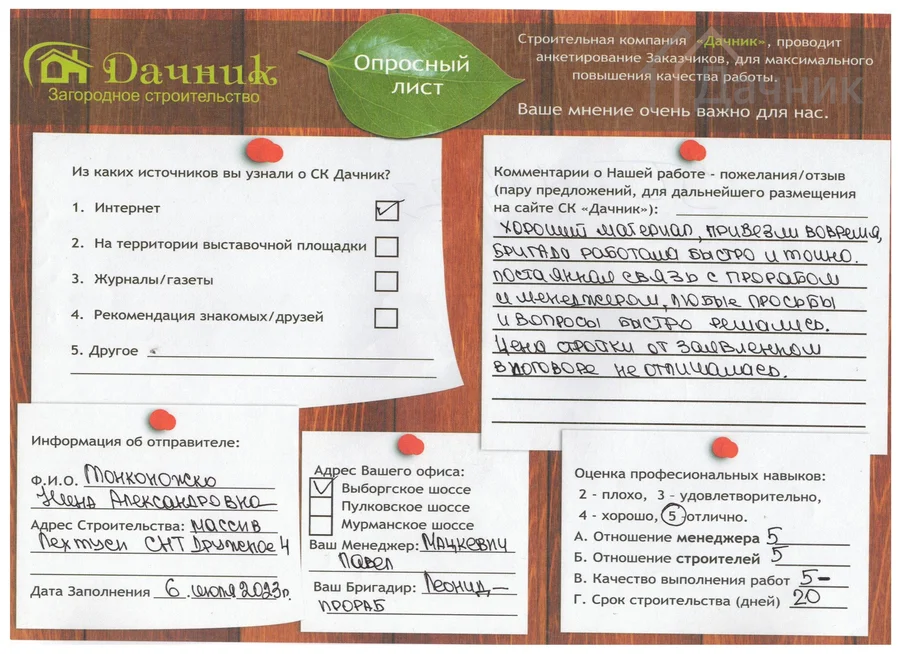 Дачник
Загородное строительство
Опросный
лист
Строительная компания «Дачник», проводит
анкетирование Заказчиков, для максимального
повышения качества работы.
Ваше мнение очень важно для нас.
Дачник
Из каких источников вы узнали о СК Дачник?
1. Интернет
2. На территории выставочной площадки
3. Журналы/газеты
4. Рекомендация знакомых/друзей
5. Другое
Комментарии о Нашей работе - пожелания/отзыв
(пару предложений, для дальнейшего размещения
на сайте СК «Дачник»):
хороший материал, привезли вовремя,
бригада работала быстро и точно.
постаянная связь с прорабом
и менеджером, любые просьбы
и вопросы быстро решались.
Цена стройки от заявленном
в договоре не отличалась.
Информация об отправителе:
Ф.И.О. Тонконожко
Александровна
Адрес Строительства: массив
СНТ Дружное 4
Дата Заполнения 6 июля 2023г.
Адрес Вашего офиса:
Выборгское шоссе
Пулковское шоссе
Мурманское шоссе
Ваш Менеджер: Мацкевич
Павел
Ваш Бригадир: Леонид —
прораб
Оценка професиональных навыков:
2 - плохо, 3 - удовлетворительно,
4 - хорошо, 5 - отлично.
А. Отношение менеджера 5
Б. Отношение строителей 5
В. Качество выполнения работ 5-
Г. Срок строительства (дней) 20